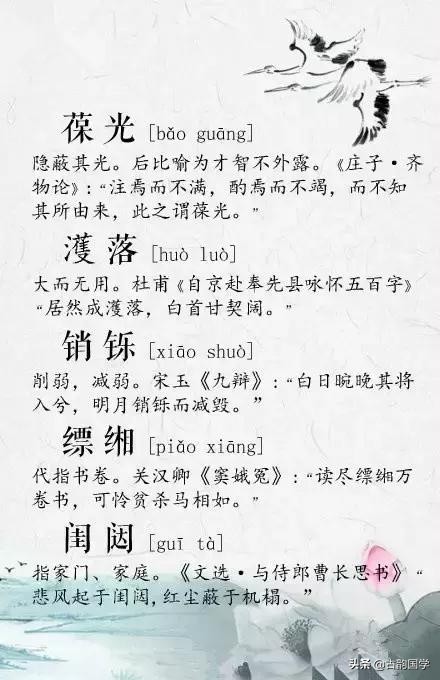 葆光 [bǎo guāng]
隐蔽其光。后比喻为才智不外露。《庄子·齐
物论》：“注焉而不满，酌焉而不竭，而不知
其所由来，此之谓葆光。”
濩落 [huò luò]
大而无用。杜甫《自京赴奉先县咏怀五百字》
“居然成濩落，白首甘契阔。”
销铄 [xiāo shuò]
削弱，减弱。宋玉《九辩》：“白日晼晚其将
入兮，明月销铄而减毁。”
缥缃 [piǎo xiāng]
代指书卷。关汉卿《窦娥冤》：“读尽缥缃万
卷书，可怜贫杀马相如。”
闺闼 [guī tà]
指家门、家庭。《文选·与侍郎曹长思书》“
悲风起于闺闼,红尘蔽于机榻。”
头条 @古韵国学